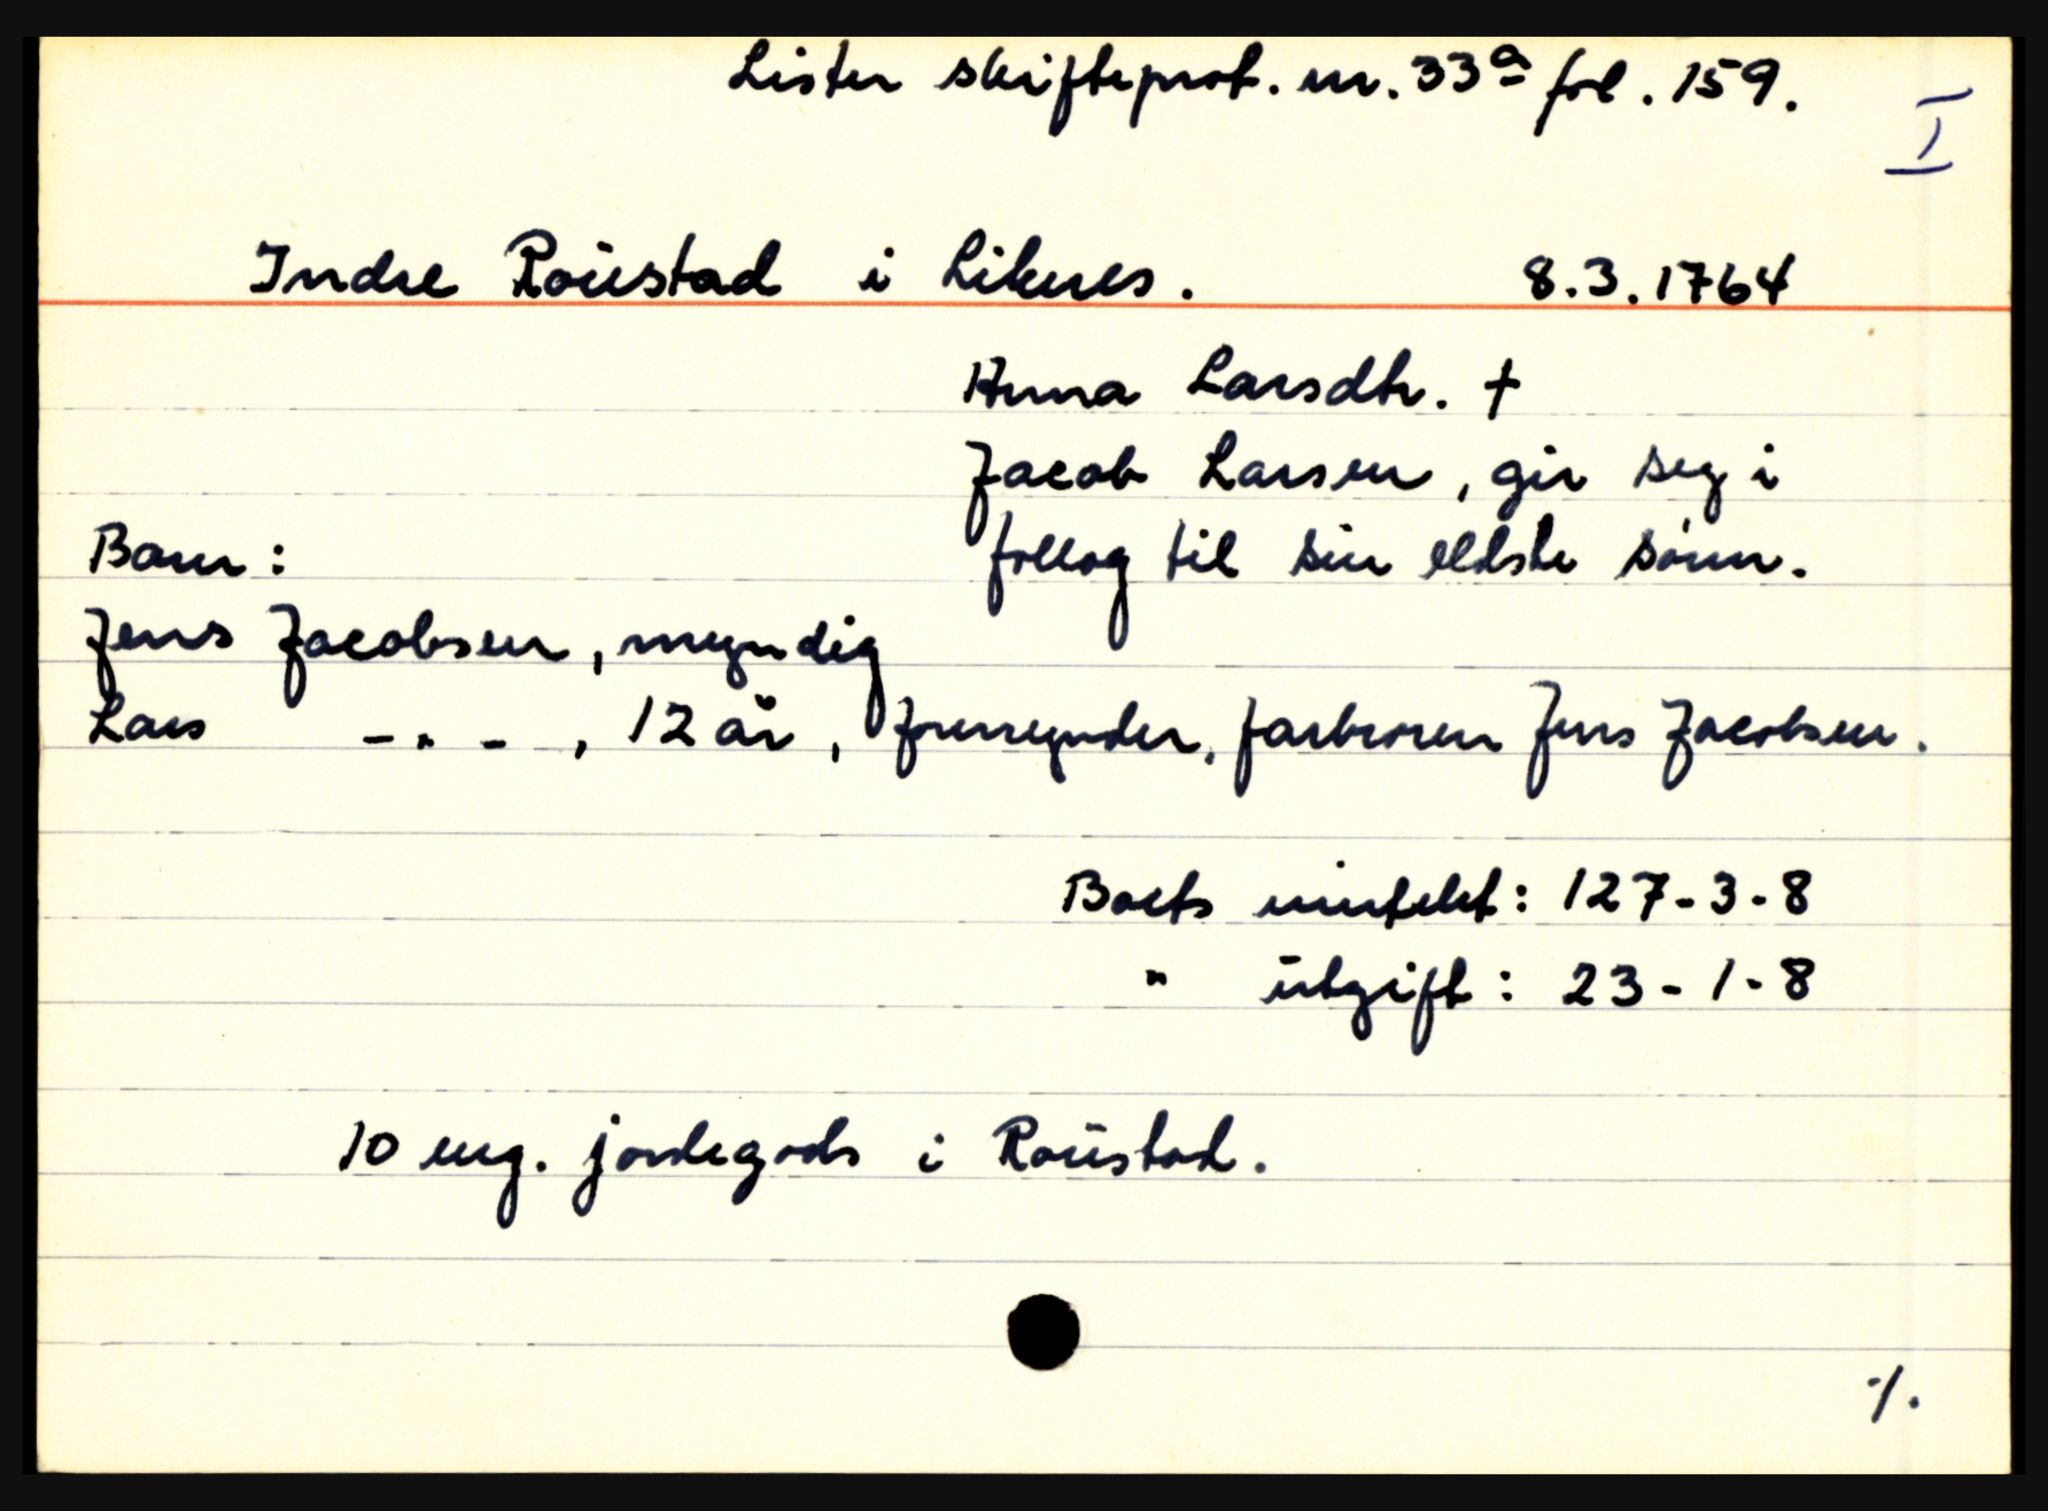 Lister skifteprot. nr. 33a fol. 159.
I
Indre Roustad i Liknes. 8.3.1764
Anna Larsdtr. †
Jacob Larsen, gir seg i
Barn: follog til sin eldste sønn.
Jens Jacobsen, myndig
Lars -"-, 12 år, formynder, farbroren Jens Jacobsen.
Boets inntekt: 127-3-8
" utgift: 23-1-8
10 eng. jordegods i Roustad.
%.